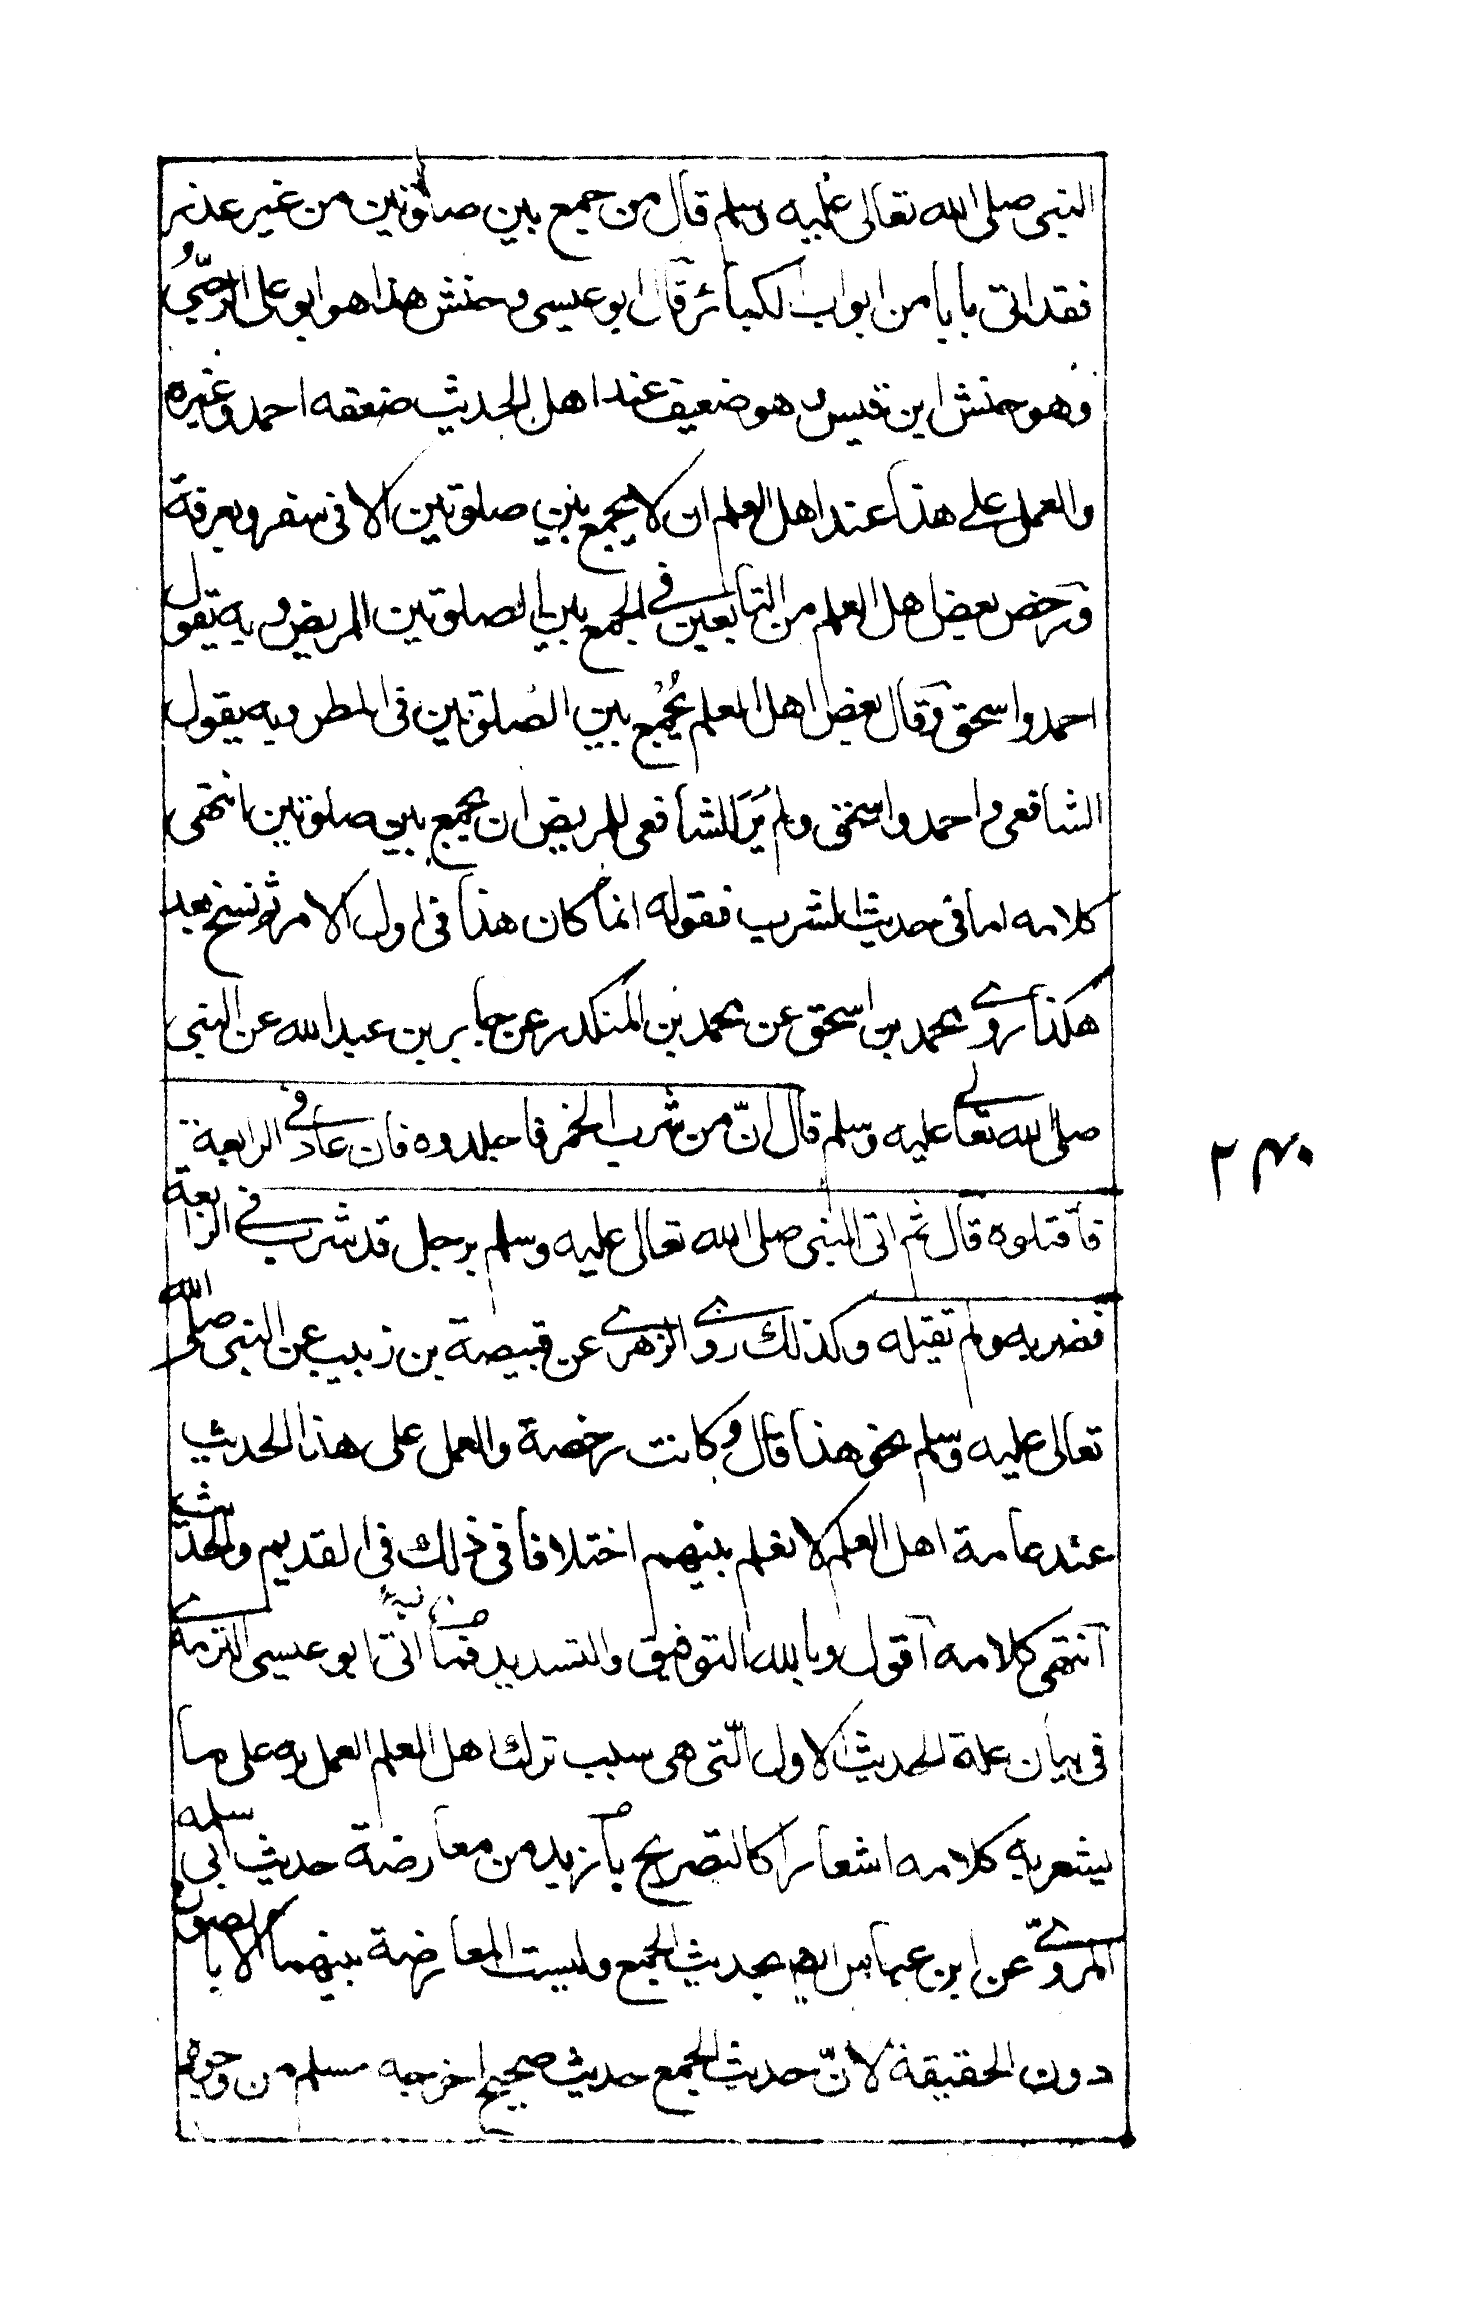 النبى صلى الله تعالى عليه وسلم قال من جمع بين صلوتين من غير عذر
فقد اتى بابا من ابواب الكبائر قال ابو عيسى وحنش هذا هو ابو على الرحبىُّ
وهو حنش ابن قيس وهو ضعيف عند اهل الحديث ضعفه احمد وغيره
والعمل على هذا عند اهل العلم ان لا يجمع بين صلوتين الا فى سفر وبعرفة
ورخص بعض اهل العلم من التابعين فى الجمع بين الصلوتين المريض وبه يقول
احمد واسحق وقال بعض اهل العلم يُجْمع بين الصلوتين فى المطر وبه يقول
الشافعى واحمد واسحق ولم يَرَ الشافعى للمريض ان يجمع بين صلوتين انتهى
كلامه اما فى حديث الشرب فقوله انما كان هذا فى اول الامر ثم نسخ بعد
هكذا روى محمد بن اسحق عن محمد بن المنكدر عن جابر بن عبد الله عن النبى
صلى الله تعالى عليه وسلم قال انّ من شرب الخمر فاجلدوه فان عاد فى الرابعة
فاقتلوه قال ثم اتى النبى صلى الله تعالى عليه وسلم برجل قد شرب فى الرابعة
فضربه ولم يقتله وكذلك روى الزهرى عن قبيصة بن زبيب عن النبى صلى الله
تعالى عليه وسلم نحو هذا قال وكانت رخصة والعمل على هذا الحديث
عند عامة اهل العلم لا نعلم بينهم اختلافا فى ذلك فى القديم والحديث
انتهى كلامه اقول وبالله التوفيق والتسديد فما اتى ابو عيسى الترمذى
فى بيان علة الحديث الاول الّتى هى سبب ترك اهل العلم العمل به على ما
يشعر به كلامه اشعارا كالتصريح بازيد من معارضة حديث ابى سلمه
المروىّ عن ابن عباس بحديث الجمع وليست المعارضة بينهما الا بالصورة
دون الحقيقة لانّ حديث الجمع حديث صحيح اخرجه مسلم من وجوه